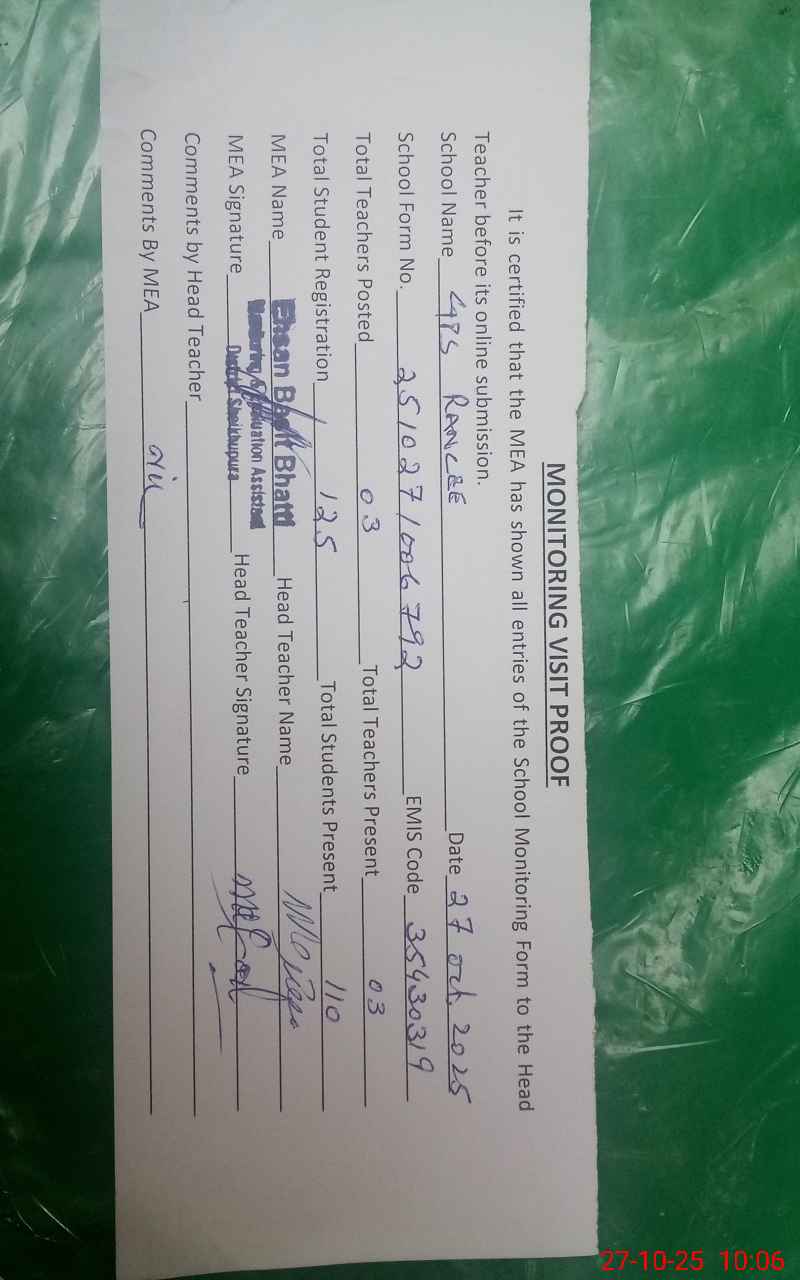 MONITORING VISIT PROOF
It is certified that the MEA has shown all entries of the School Monitoring Form to the Head
Teacher before its online submission.
School Name GPS RANCEE Date 27 Oct, 2025
School Form No. 2510271006792 EMIS Code 35430319
Total Teachers Posted 03 Total Teachers Present 03
Total Student Registration 125 Total Students Present 110
MEA Name Ehsan Bhatti Head Teacher Name
Monitoring & Evaluation Assistant
MEA Signature District Sheikhupura Head Teacher Signature
Comments by Head Teacher
Comments By MEA
27-10-25 10:06